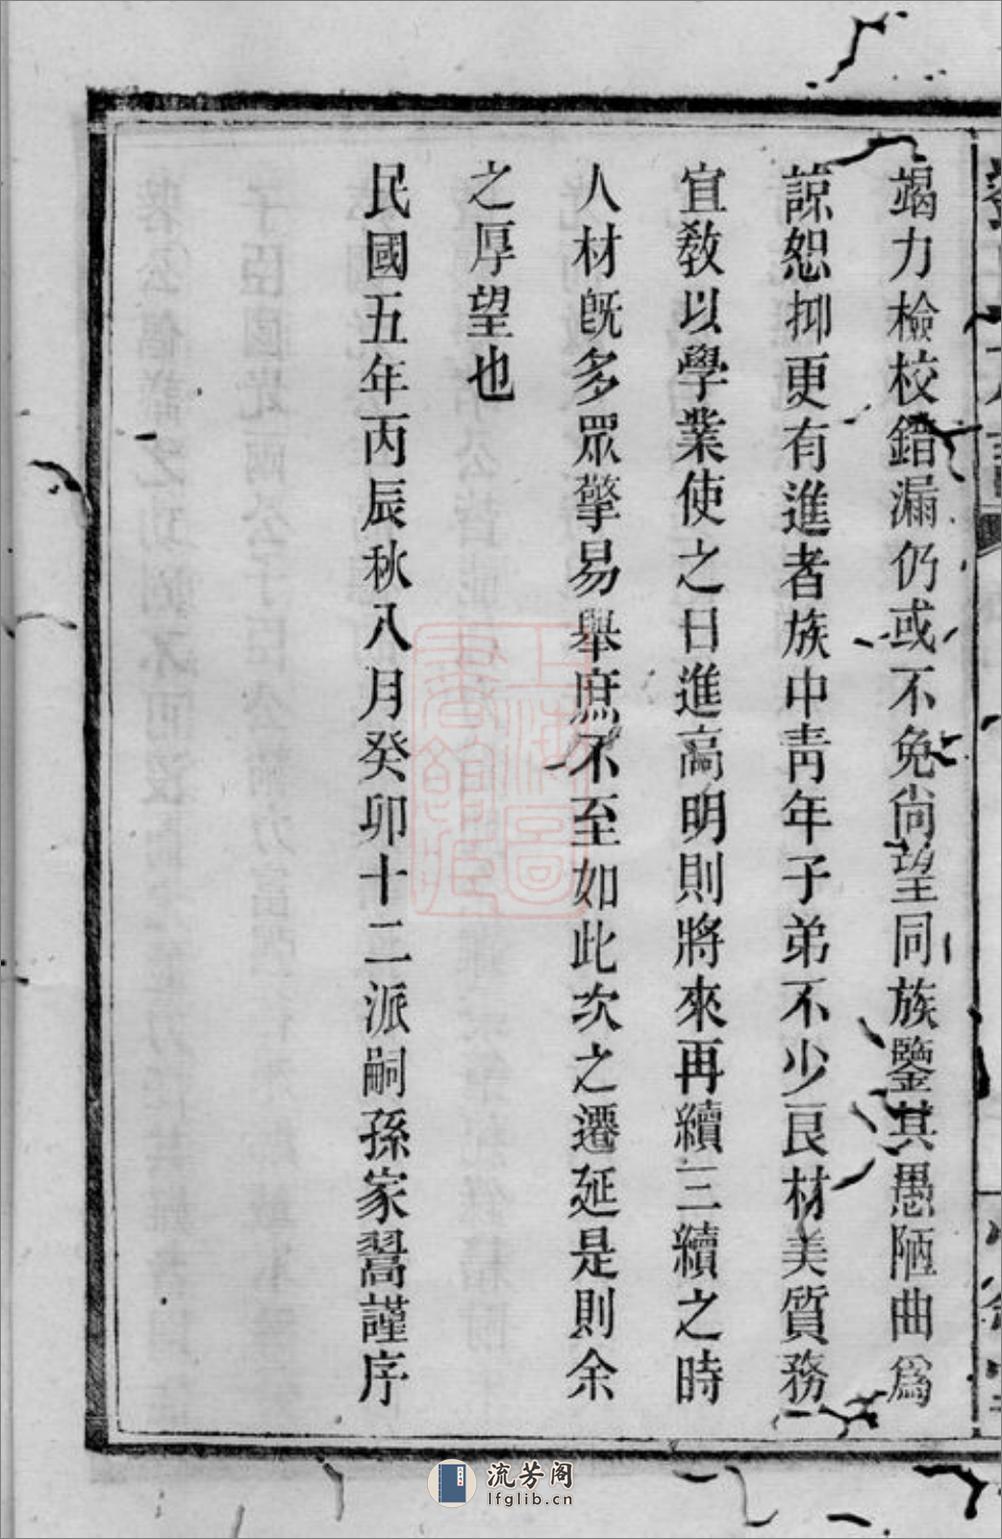 竭力檢校錯漏仍或不免尙望同族鑒其愚陋曲爲
諒恕抑更有進者族中靑年子弟不少良材美質務
宜敎以學業使之日進高明則將來再續三續之時
人材旣多眾擎易舉庶不至如此次之遷延是則余
之厚望也
民國五年丙辰秋八月癸卯十二派嗣孫家翯謹序
上海圖書館藏
流芳阁
lfglib.cn